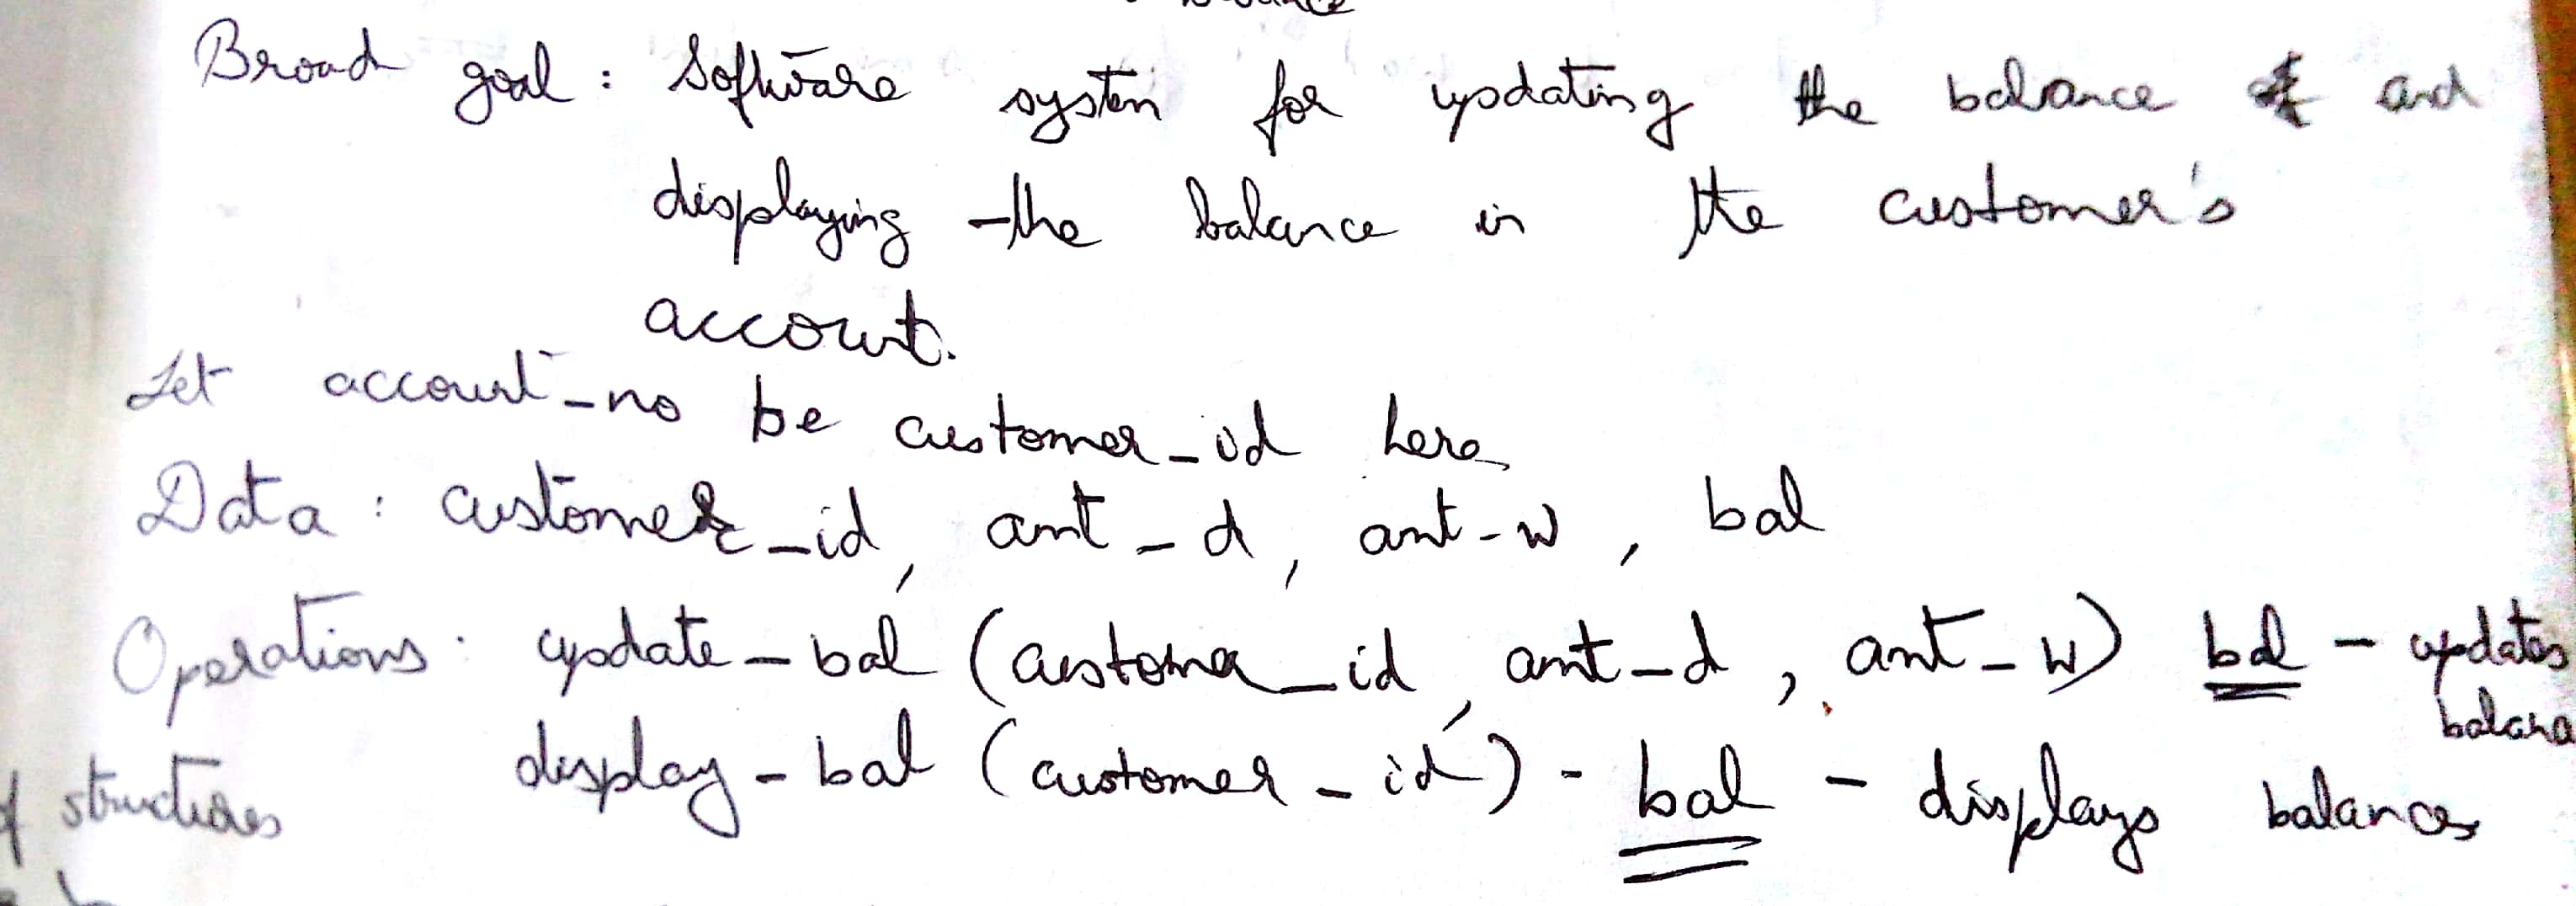 Broad goal : Software system for updating the balance and
displaying the balance in the customer's
account.
Let account_no be customer_id here
Data : customer_id, amt_d, amt_w, bal
Operations : update_bal (customer_id, amt_d, amt_w) bal - updates
balance
display_bal (customer_id) - bal - displays balances
structures